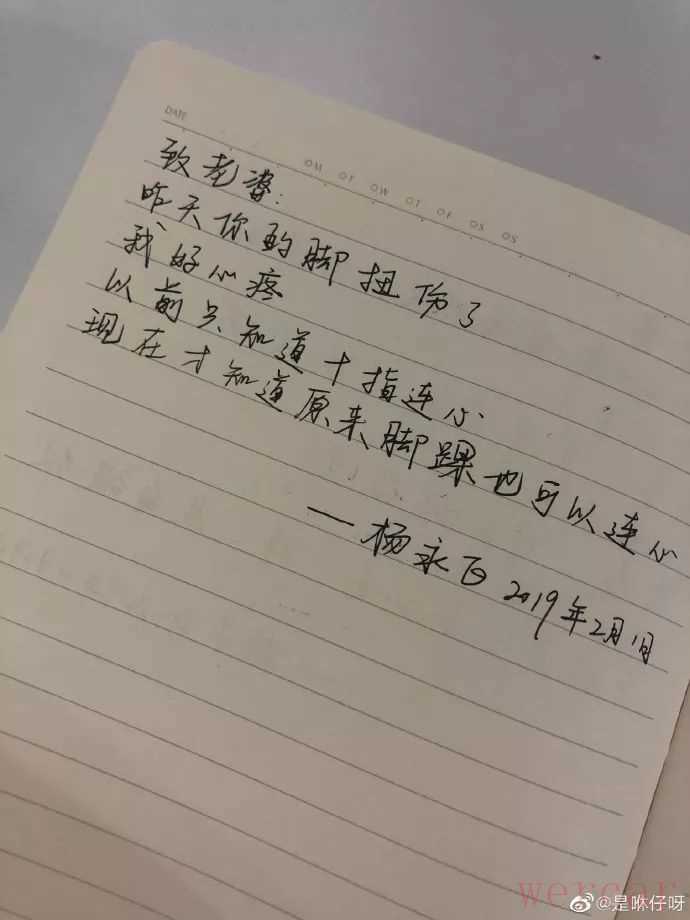 DATE
OM OT OW OT OF OS OS
致老婆:
昨天你的脚扭伤了
我好心疼
以前只知道十指连心
现在才知道原来脚踝也可以连心
——杨永 2019年2月1日
wercar
@是咻仔呀